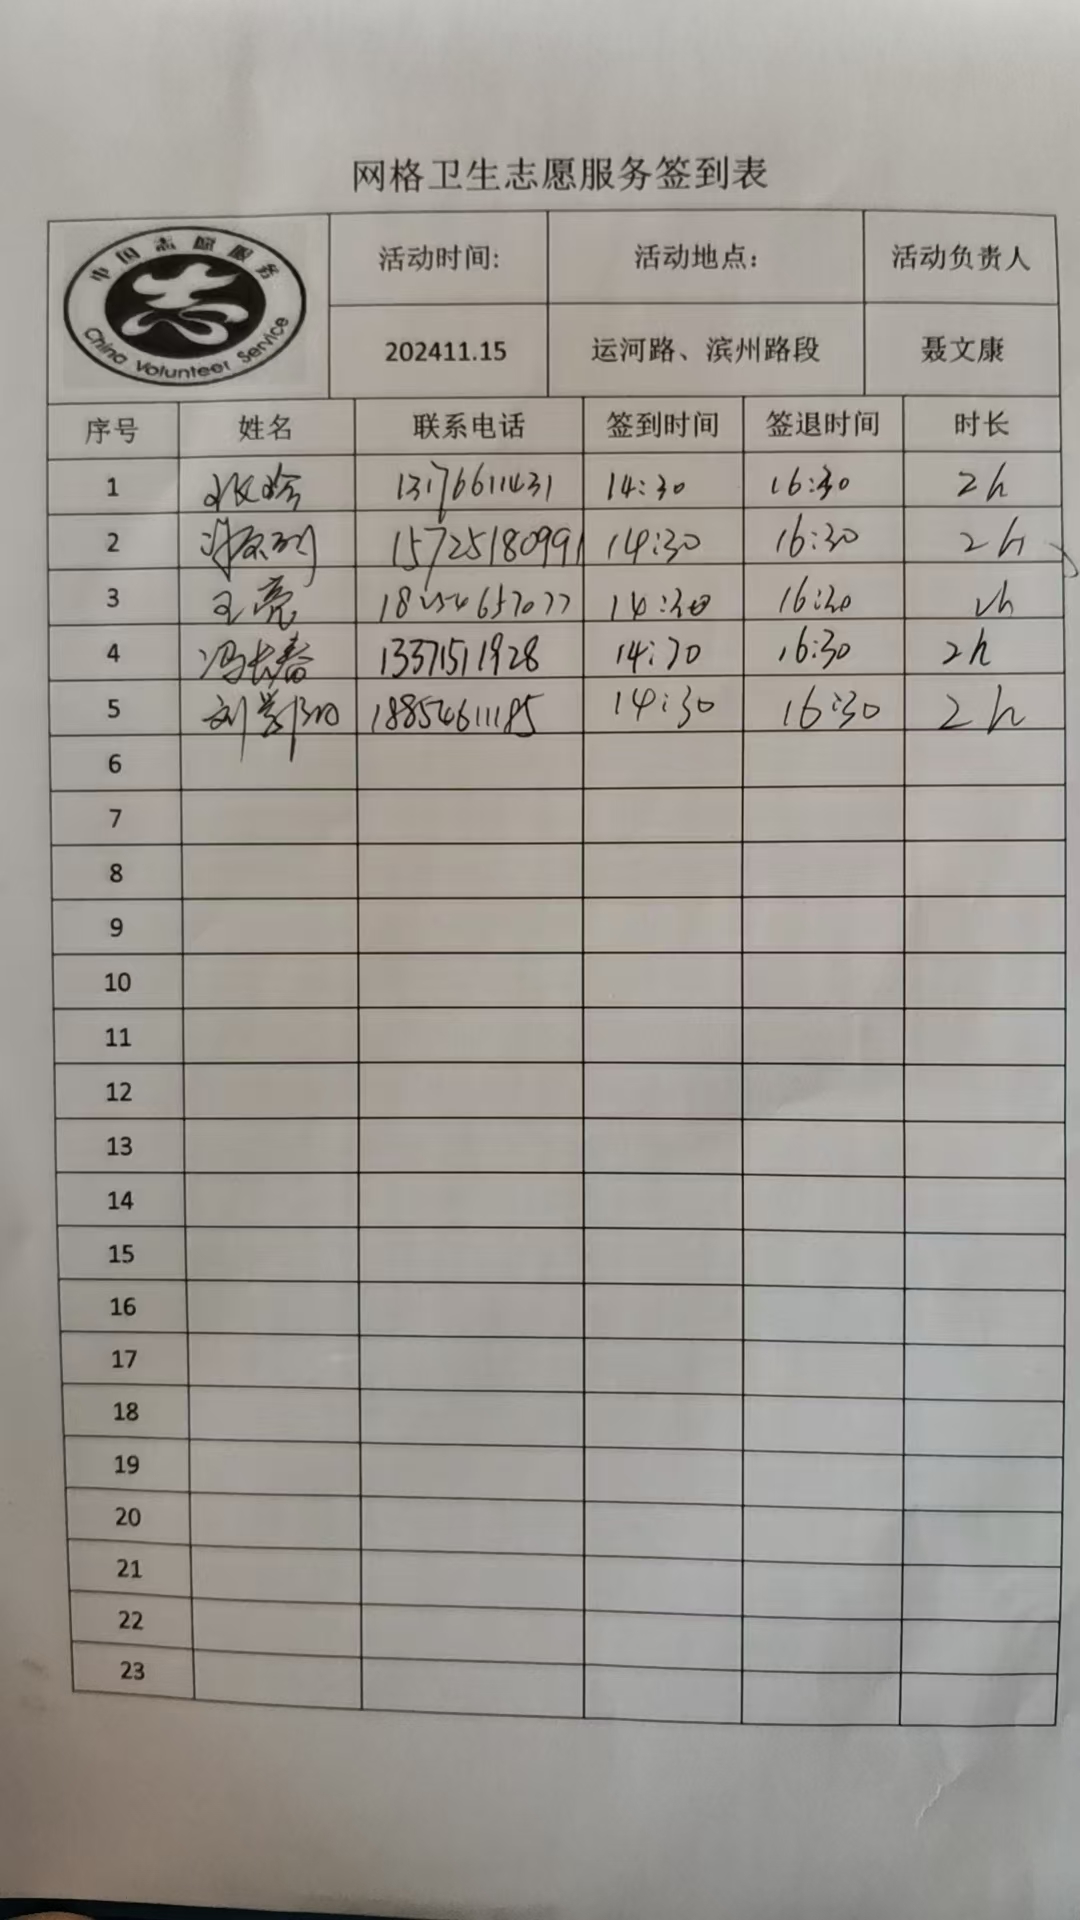 网格卫生志愿服务签到表
中国志愿服务
China Volunteer Service
活动时间: 活动地点: 活动负责人
202411.15 运河路、滨州路段 聂文康
序号 姓名 联系电话 签到时间 签退时间 时长
1 13176611431 14:30 16:30 2h
2 15725180991 14:30 16:30 2h
3 王亮 14:30 16:30 2h
4 冯长春 13371511928 14:30 16:30 2h
5 18854611185 14:30 16:30 2h
6
7
8
9
10
11
12
13
14
15
16
17
18
19
20
21
22
23